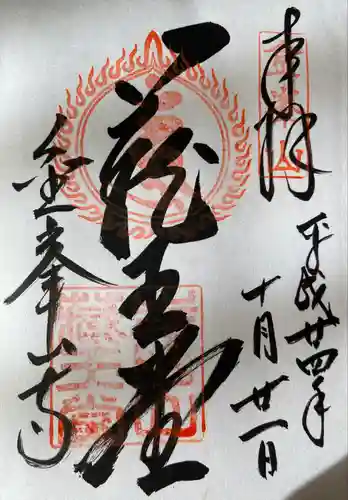 奉拝
平成廿四年
十月廿一日
蔵王堂
金峯山寺